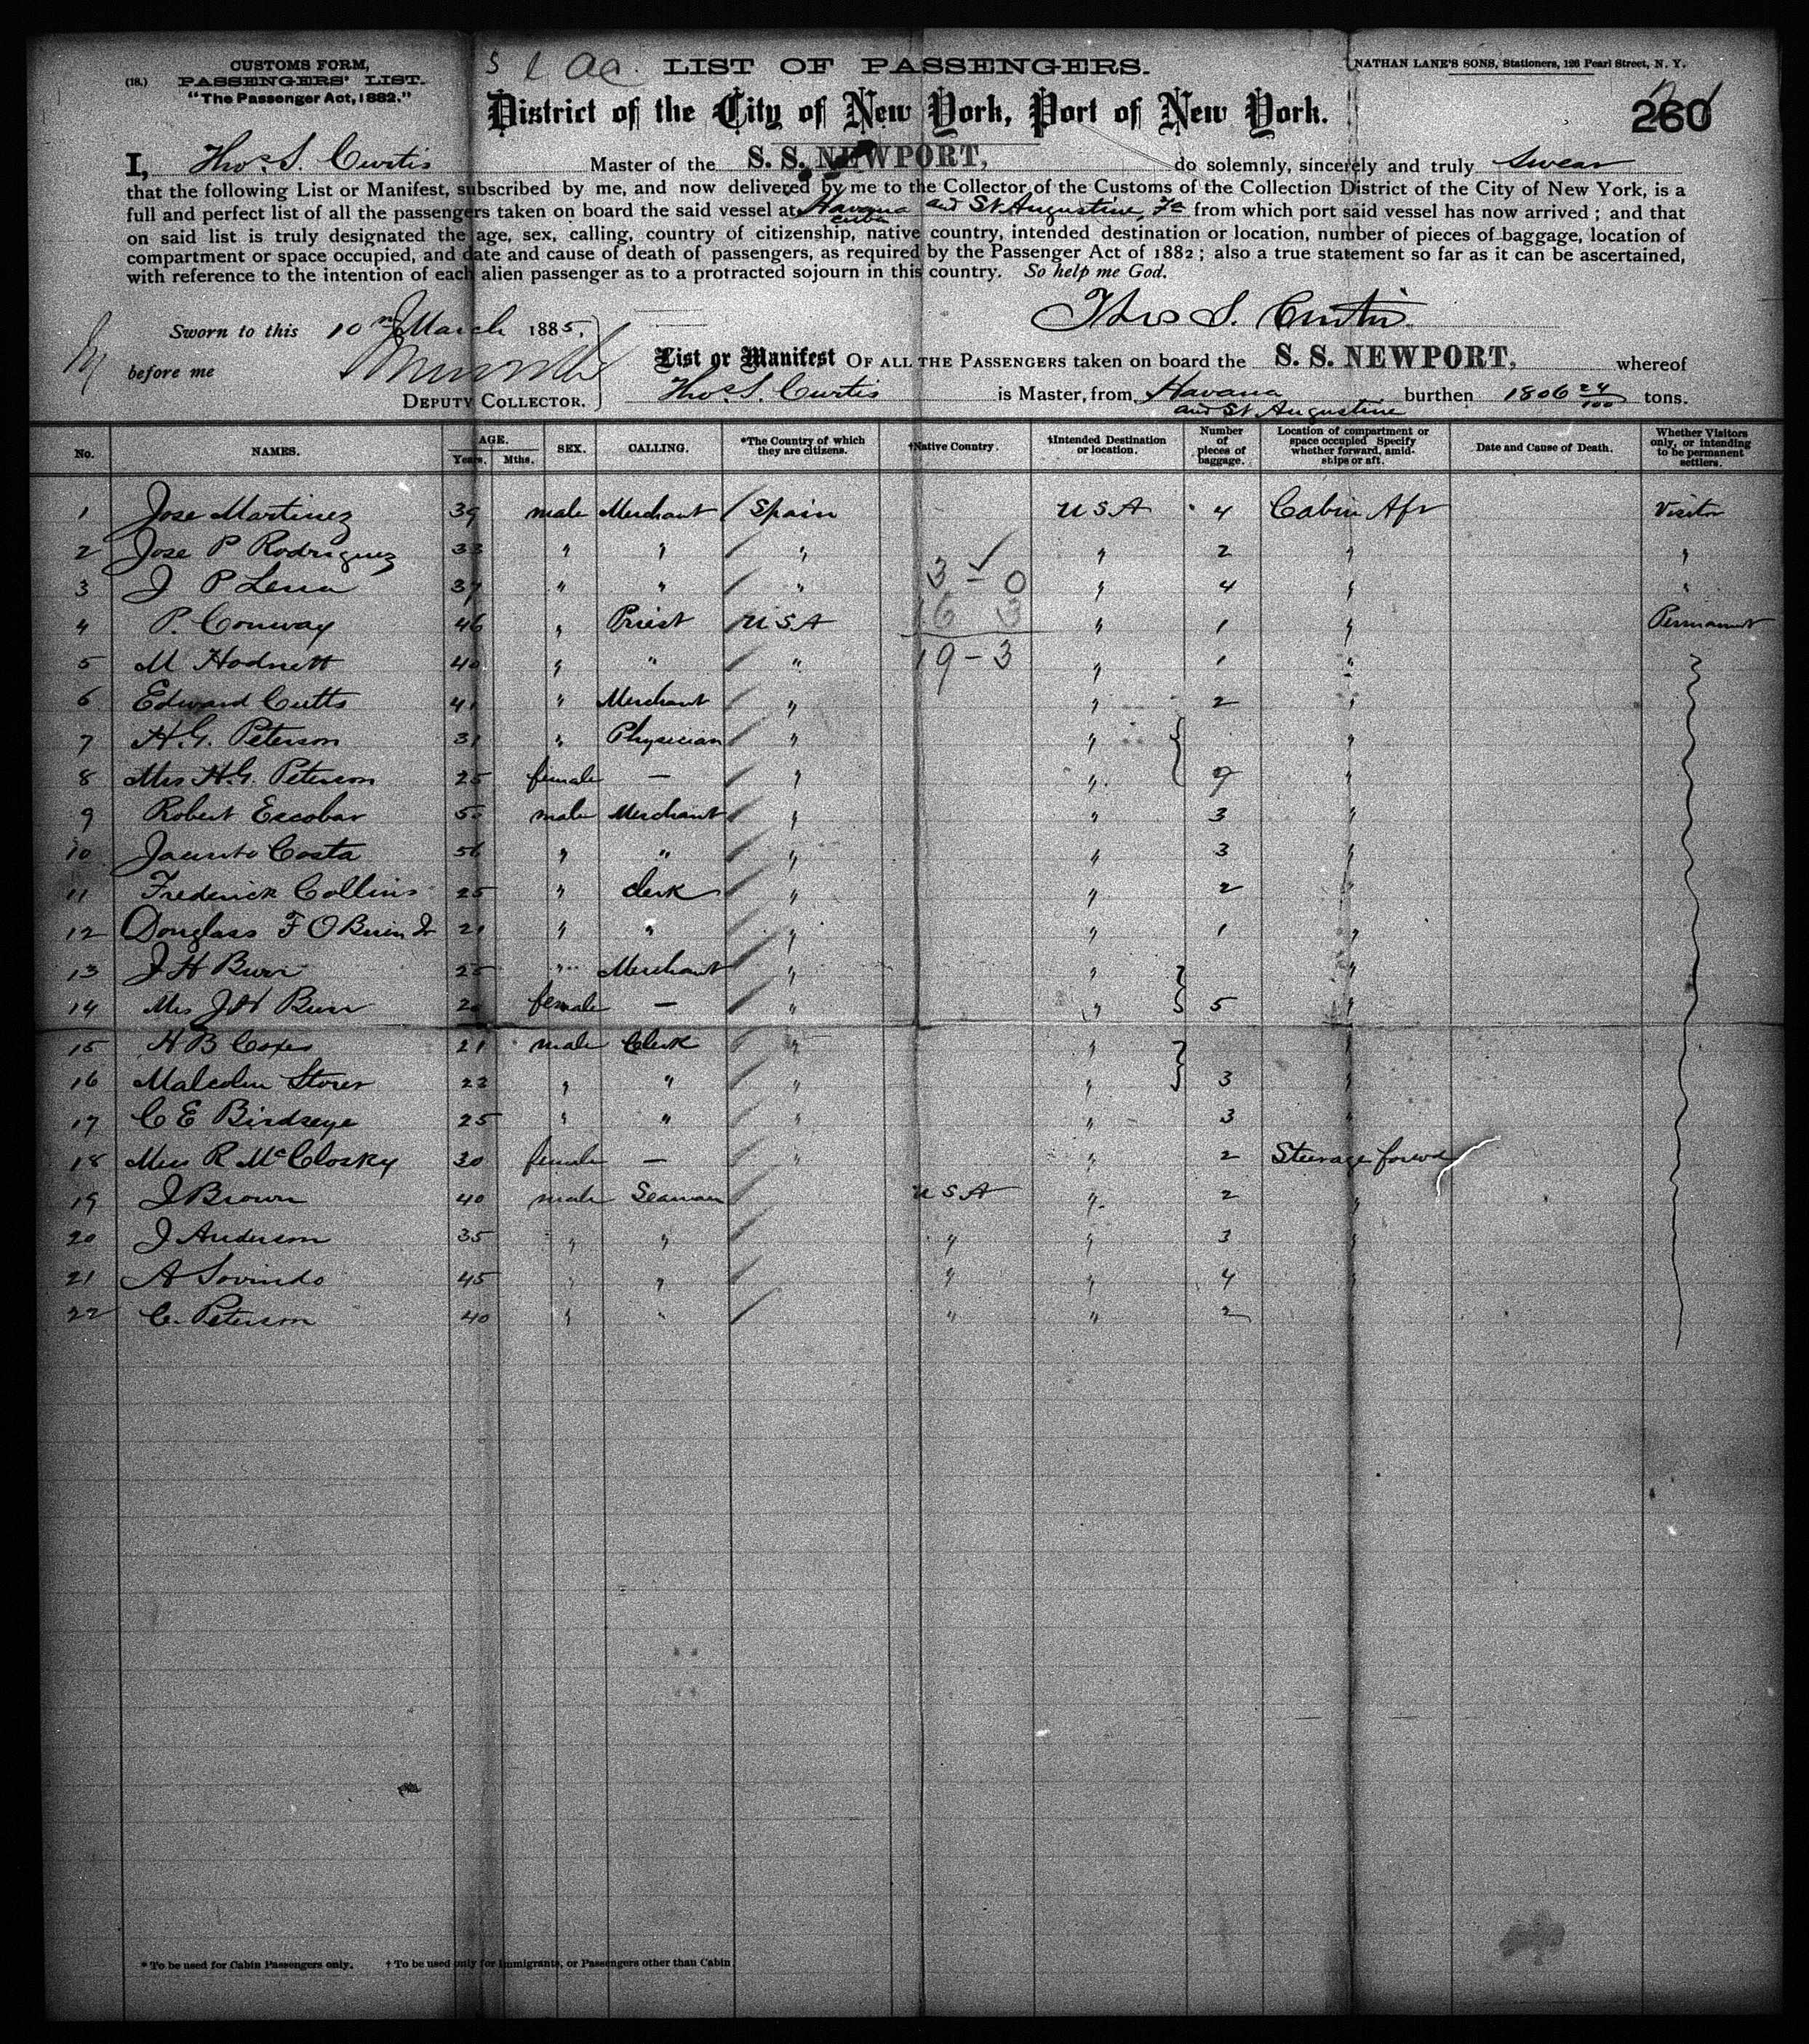 CUSTOMS FORM,
(18.) PASSENGERS' LIST.
"The Passenger Act, 1882."
LIST OF PASSENGERS.
NATHAN LANE'S SONS, Stationers, 126 Pearl Street, N. Y.
District of the City of New York, Port of New York.
260
I, Thos. S. Curtis Master of the S. S. NEWPORT, do solemnly, sincerely and truly swear
that the following List or Manifest, subscribed by me, and now delivered by me to the Collector of the Customs of the Collection District of the City of New York, is a
full and perfect list of all the passengers taken on board the said vessel at Havana Cuba and St Augustine, Fa from which port said vessel has now arrived; and that
on said list is truly designated the age, sex, calling, country of citizenship, native country, intended destination or location, number of pieces of baggage, location of
compartment or space occupied, and date and cause of death of passengers, as required by the Passenger Act of 1882; also a true statement so far as it can be ascertained,
with reference to the intention of each alien passenger as to a protracted sojourn in this country. So help me God.
Thos S. Curtis
Sworn to this 10 March 1885,
before me
DEPUTY COLLECTOR.
List or Manifest OF ALL THE PASSENGERS taken on board the S. S. NEWPORT, whereof
Thos. S. Curtis is Master, from Havana and St Augustine burthen 1806 24/100 tons.
No. NAMES. AGE. Years. Mths. SEX. CALLING. *The Country of which they are citizens. †Native Country. †Intended Destination or location. Number of pieces of baggage. Location of compartment or space occupied Specify whether forward, amidships or aft. Date and Cause of Death. Whether Visitors only, or intending to be permanent settlers.
1 Jose Martinez 39 male Merchant Spain USA 4 Cabin Aft Visitor
2 Jose P Rodriguez 33 " " " " 2 " "
3 J P Lena 37 " " " 3 - 0 " 4 " "
4 P. Conway 46 " Priest USA 16 3 " 1 " Permanent
5 M Hodnett 40 " " " 19 - 3 " 1 "
6 Edward Cutts 41 " Merchant " " 2 "
7 H.G. Peterson 31 " Physician " " "
8 Mrs H.G. Peterson 25 female — " " 9 "
9 Robert Escobar male Merchant " " 3 "
10 Jacinto Costa 56 " " " " 3 "
11 Frederick Collins 25 " Clerk " " 2 "
12 Douglass F O'Brien Jr 21 " " " " 1 "
13 J H Burr 25 " Merchant " " "
14 Mrs J H Burr female — " " 5 "
15 H B Coxe 21 male Clerk " " "
16 Malcolm Storer 22 " " " " 3 "
17 C E Birdseye 25 " " " " 3 "
18 Miss R McClosky 30 female — " " 2 Steerage forwd
19 J Brown 40 male Seaman USA " 2 "
20 J Anderson 35 " " " " 3 "
21 A Sovindo 45 " " " " 4 "
22 C. Peterson 40 " " " " 2
* To be used for Cabin Passengers only. † To be used only for Immigrants, or Passengers other than Cabin